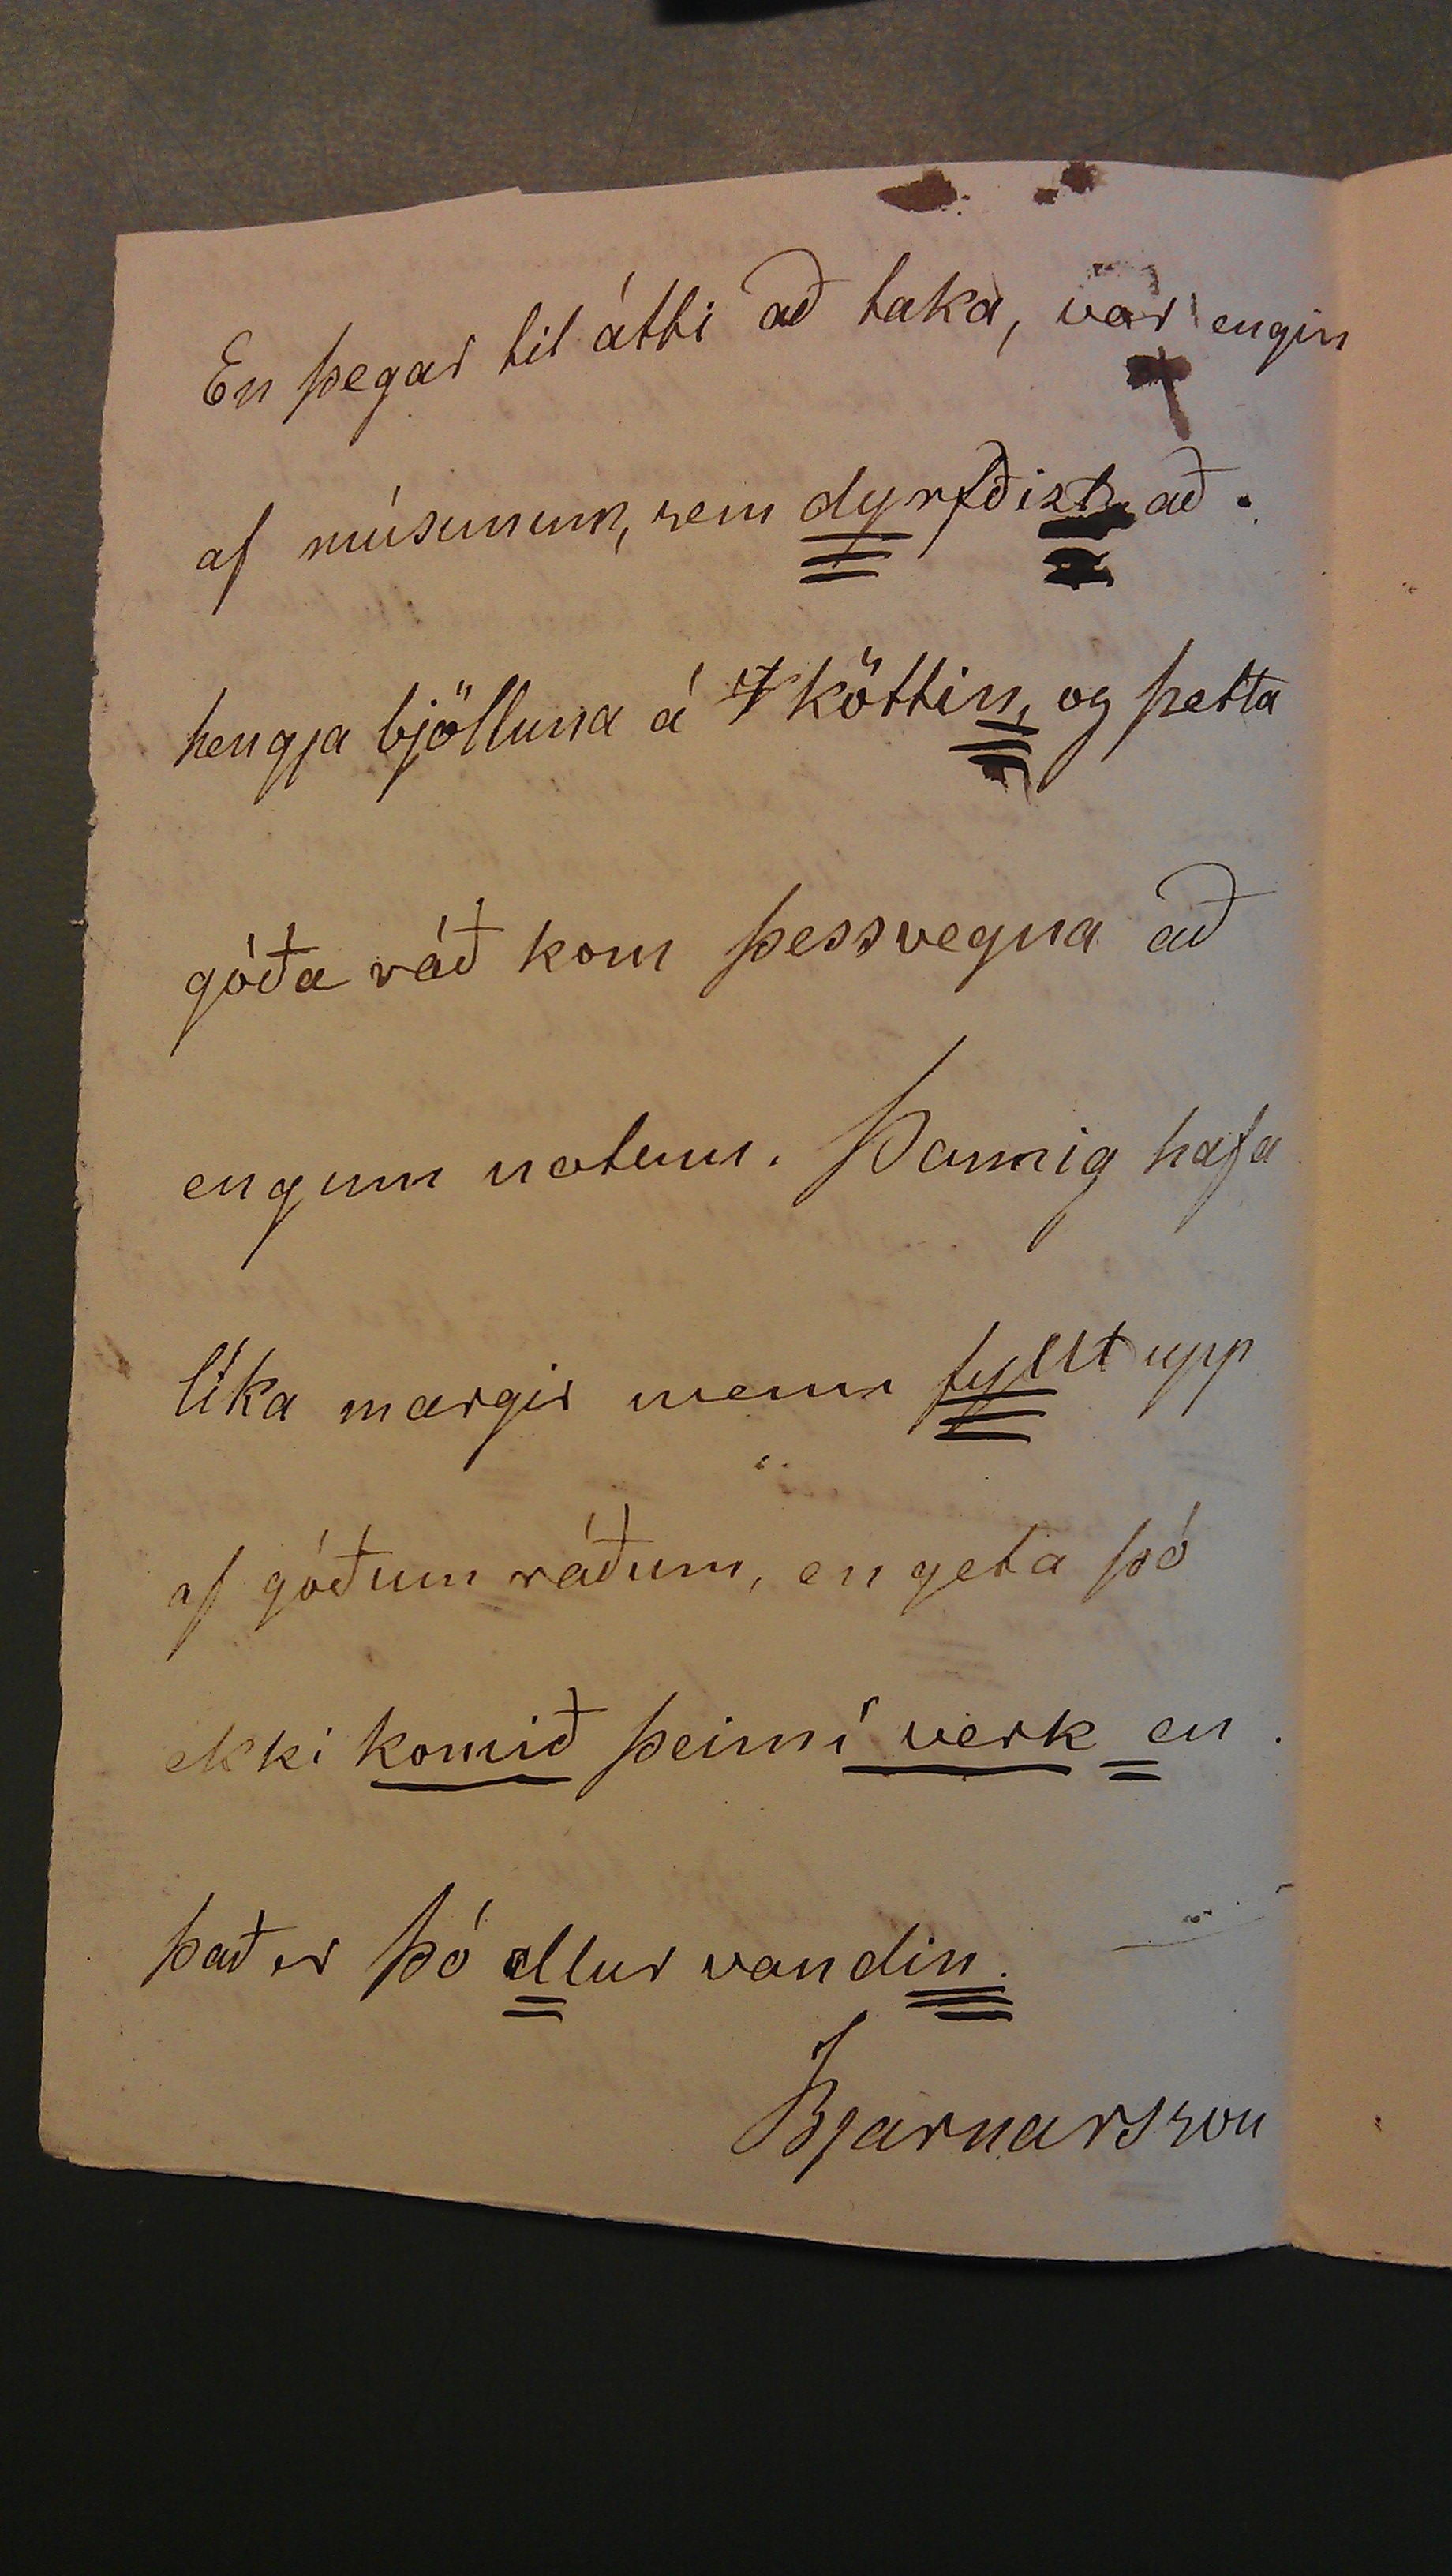 En þegar til átti að taka, var engin
af músunum, sem dyrfðizt að
hengja bjölluna á köttin, og þetta
góða ráð kom þessvegna að
engum notum. Þannig hafa
líka margir menn fyllst upp
af góðum ráðum, en geta þó
ekki komið þeim í verk en
það er þó allur vandin.
Bjarnarszon